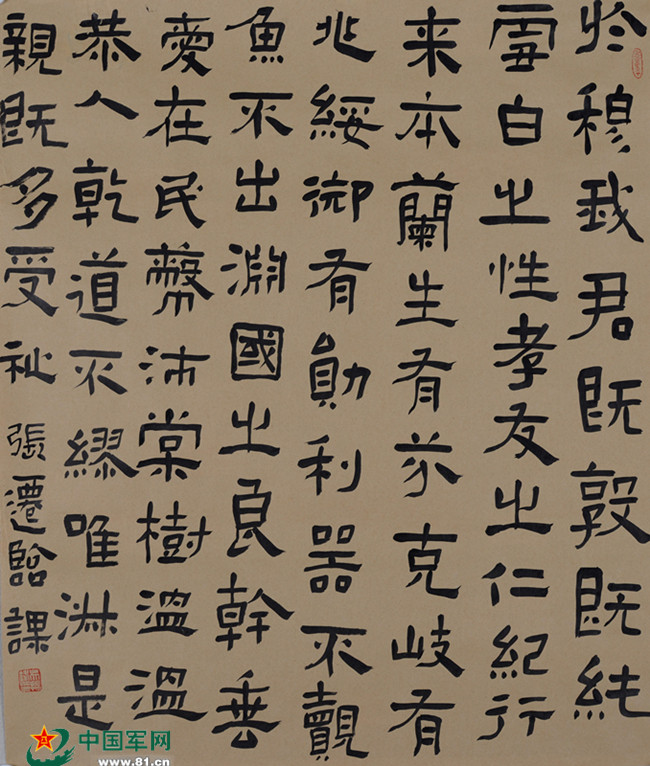 於穆我君既敦既純
雪白之性孝友之仁紀行
来本蘭生有芬克岐有
兆綏御有勛利器不覿
魚不出淵國之良幹垂
愛在民幣沛棠樹温温
恭人乾道不繆唯淋是
親既多受祉
張遷臨課
中国军网
www.81.cn